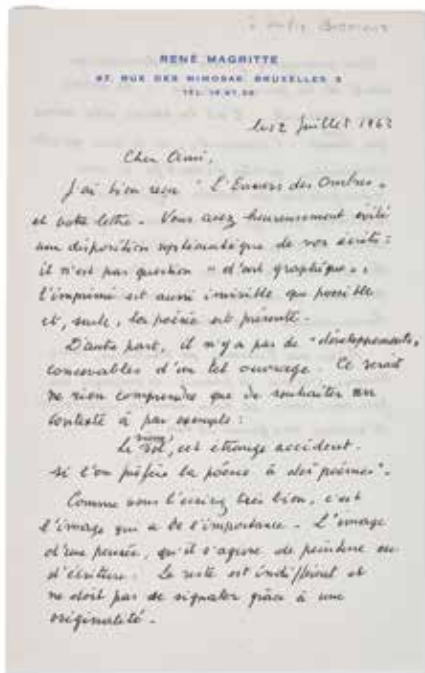 à André Bosmans
RENÉ MAGRITTE
97, RUE DES MIMOSAS BRUXELLES 3
TÉL. 15.07.30
le 2 Juillet 1962
Cher Ami,
J'ai bien reçu "l'Envers des Ombres"
et votre lettre. Vous avez heureusement évité
une disposition systématique de vos écrits :
il n'est pas question "d'art graphique",
l'imprimé est aussi invisible que possible
et, seule, la poésie est présente.
D'autre part, il n'y a pas de "développements"
concevables d'un tel ouvrage. Ce serait
ne rien comprendre que de souhaiter un
contexte à par exemple :
Le rien, cet étrange accident.
si l'on préfère la poésie à des poèmes".
Comme vous l'écrivez très bien, c'est
l'image qui a de l'importance. L'image
d'une pensée, qu'il s'agisse de peinture ou
d'écriture. Le reste est indifférent et
ne doit pas se signaler grâce à une
originalité.